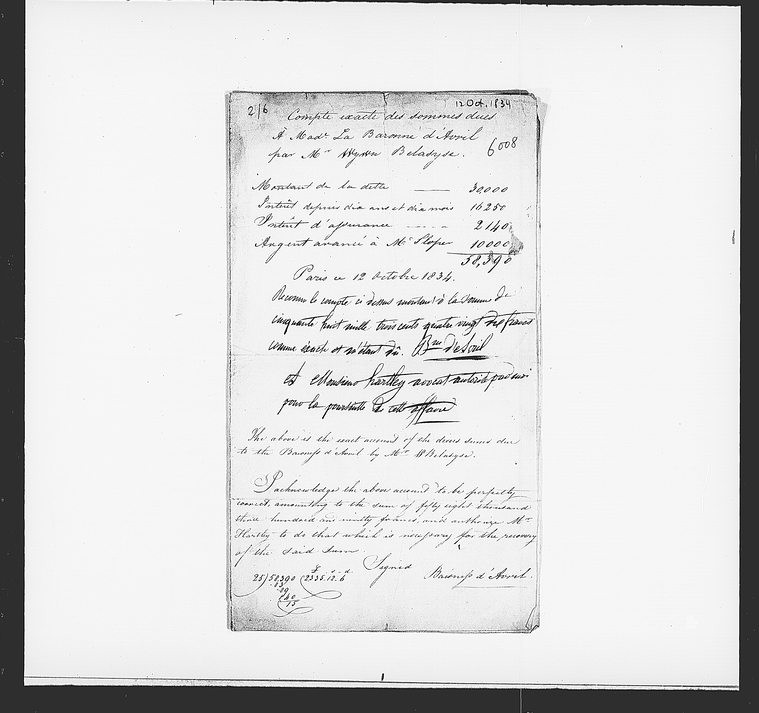 2/6
12 Oct. 1834
Compte exacte des sommes dues
A Made La Baronne d'Avril
par Mr Belasyse.
6008
Montant de la dette 30,000
Interêt depuis dix ans et dix mois 16250
Interêt d'assurance 2140
Argent avancé à Mr Sloper 10000
58,390
Paris ce 12 Octobre 1834.
Reconnu le compte ci dessus montant à la somme de
cinquante huit mille trois cents quatre vingt dix francs
comme exacte et m'étant dû. Bnne d'Avril
et Monsieur hartley avocat autorisé par moi
pour la poursuite de cette affaire
The above is the exact account of the divers sums due
to the Baroness d'Avril by Mr W Belasyse.
I acknowledge the above account to be perfectly
correct, amounting to the sum of fifty eight thousand
three hundred and ninety francs, and authorize Mr
Hartley to do that which is necessary for the recovery
of the said sum
Signed
Baroness d'Avril.
25)58,390(2335.12.6
£ s d
83
89
140
15